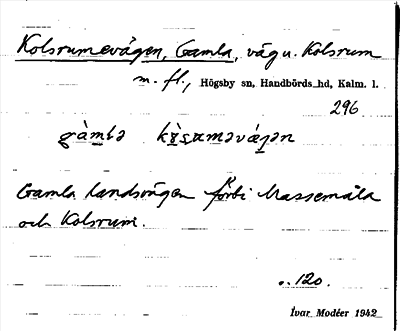 Kolsrumevägen, Gamla, väg u. Kolsrum
m. fl., Högsby sn, Handbörds hd, Kalm. l.
296
Gamla landsvägen förbi Massemåla
och Kolsrum.
s. 120.
Ivar Modéer 1942